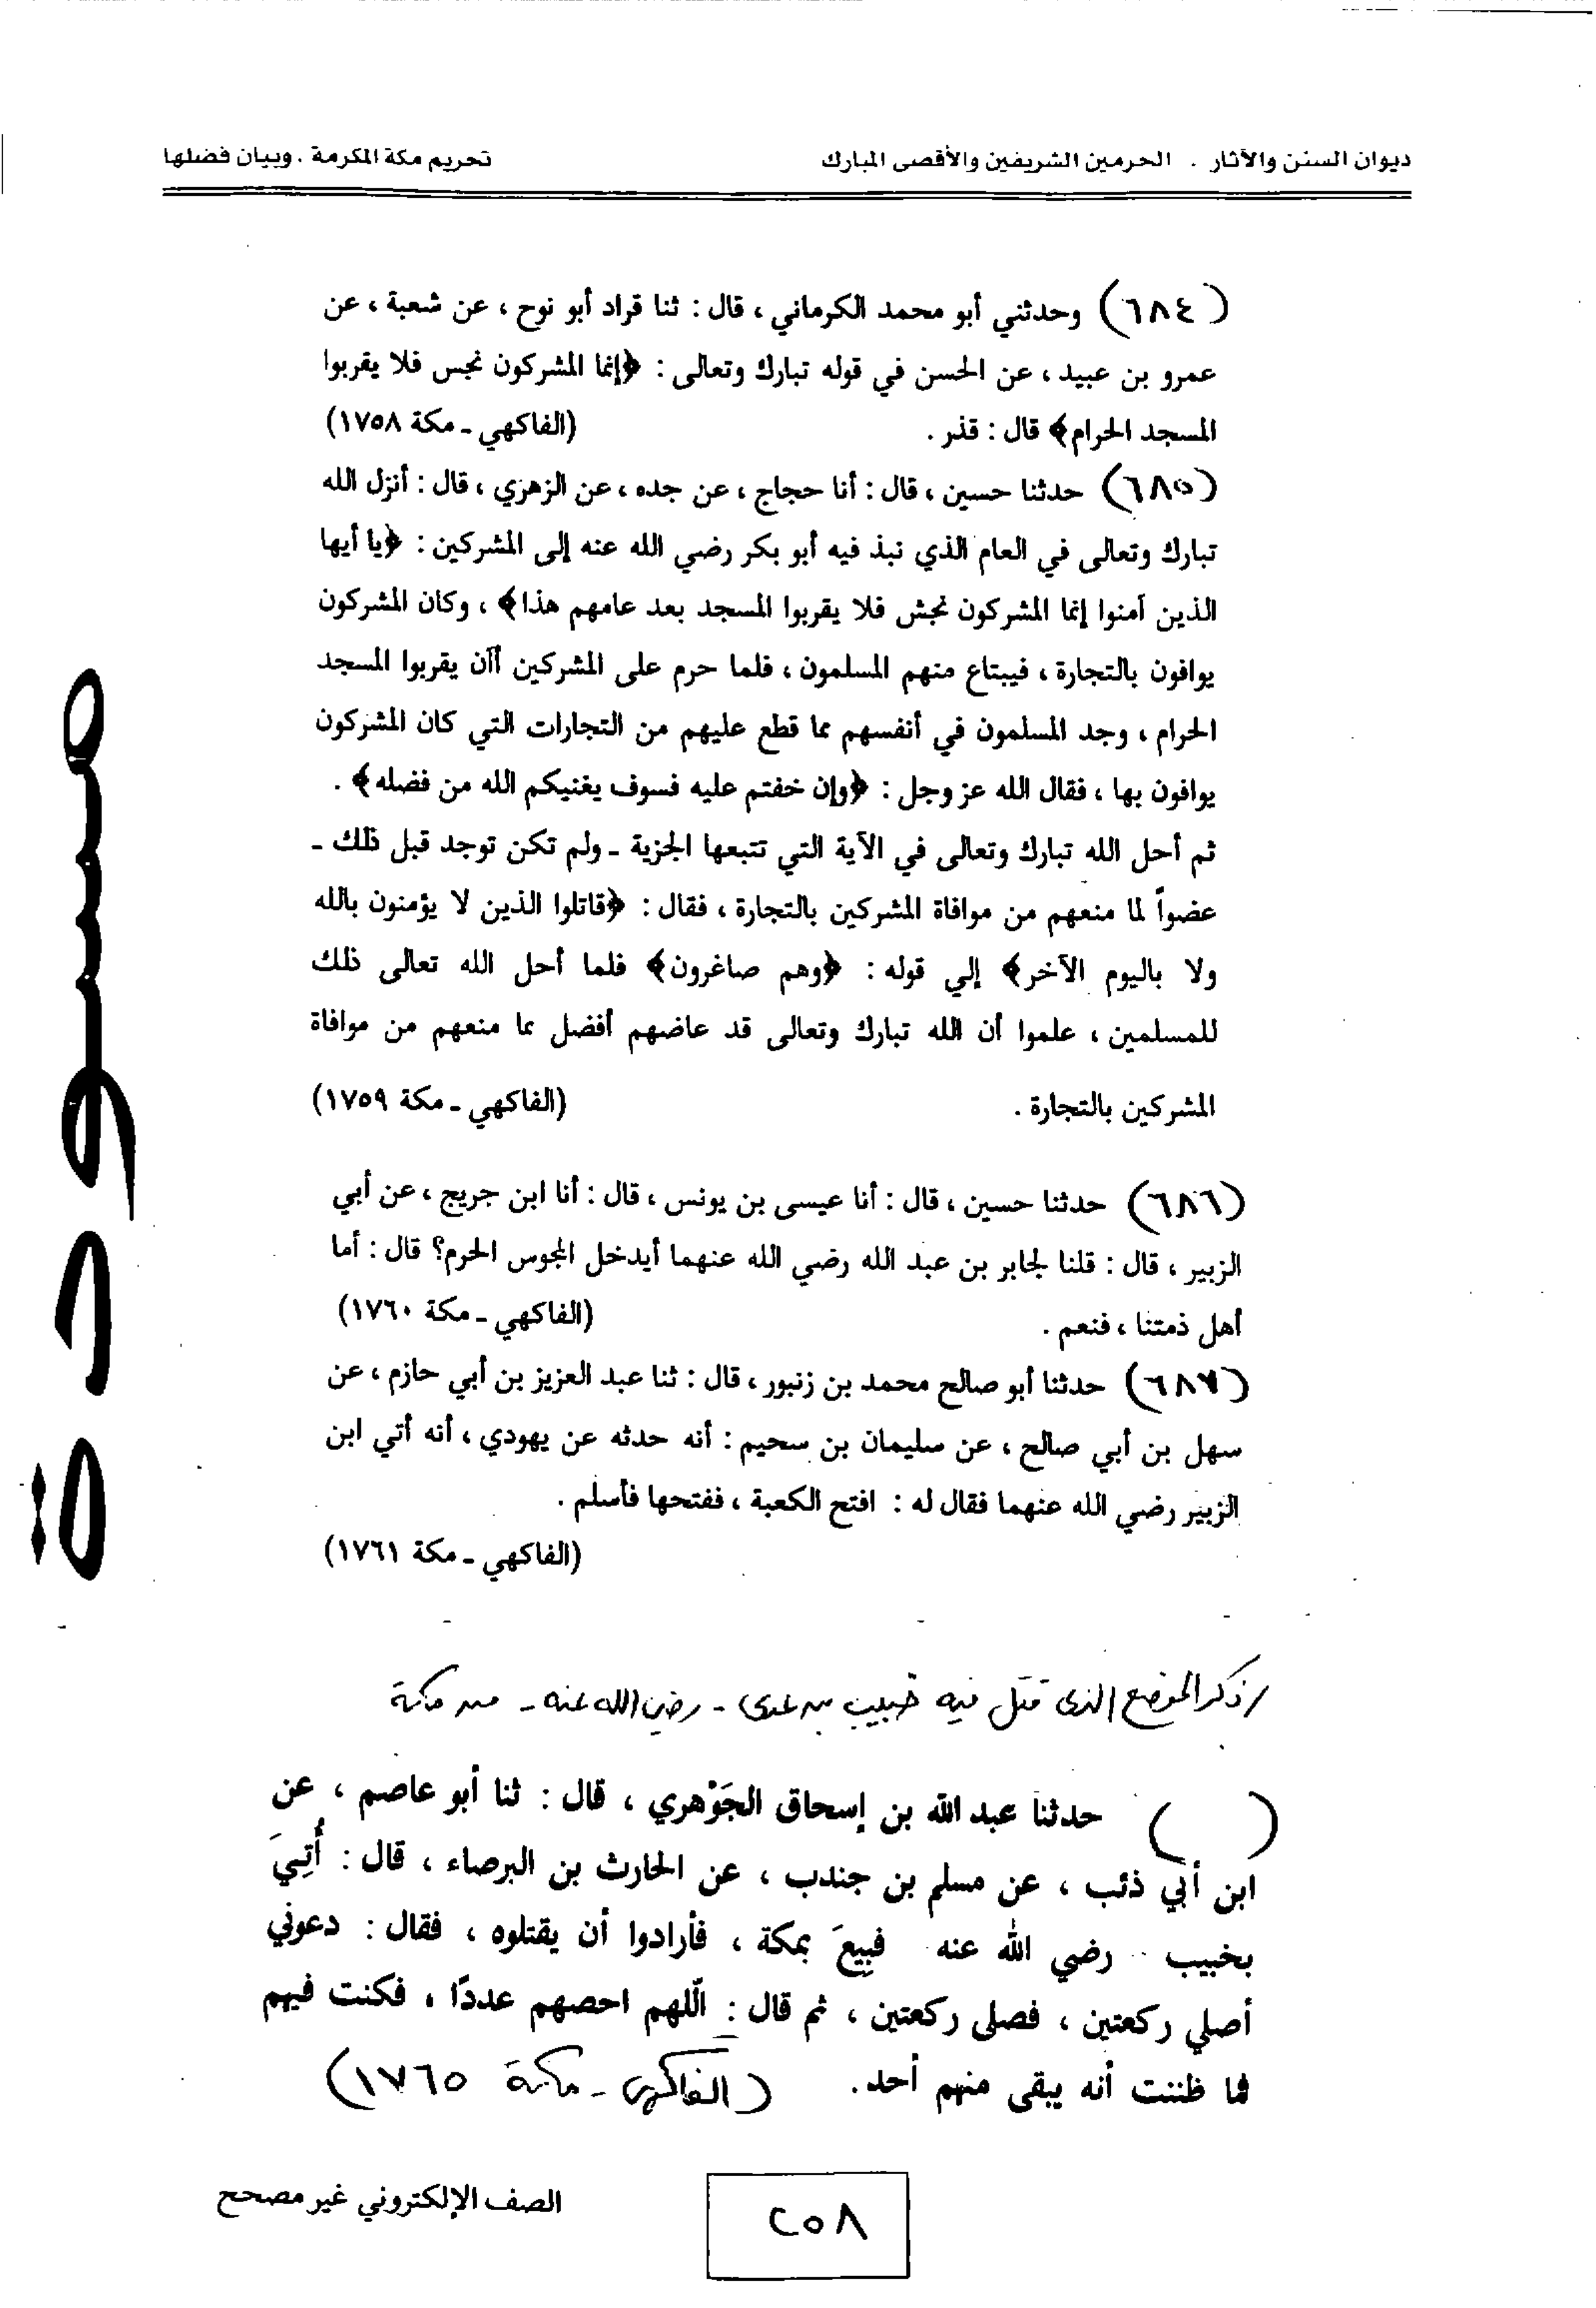 ديوان السنن والآثار . الحرمين الشريفين والأقصى المبارك
تحريم مكة المكرمة . وبيان فضلها
(٦٨٤) وحدثني أبو محمد الكرماني ، قال : ثنا قراد أبو نوح ، عن شعبة ، عن
عمرو بن عبيد ، عن الحسن في قوله تبارك وتعالى : ﴿إنما المشركون نجس فلا يقربوا
المسجد الحرام﴾ قال : قذر . (الفاكهي ـ مكة ١٧٥٨)
(٦٨٥) حدثنا حسين ، قال : أنا حجاج ، عن جده ، عن الزهزي ، قال : أنزل الله
تبارك وتعالى في العام الذي نبذ فيه أبو بكر رضي الله عنه إلى المشركين : ﴿يا أيها
الذين آمنوا إنما المشركون نجش فلا يقربوا المسجد بعد عامهم هذا﴾ ، وكان المشركون
يوافون بالتجارة ، فيبتاع منهم المسلمون ، فلما حرم على المشركين أآن يقربوا المسجد
الحرام ، وجد المسلمون في أنفسهم مما قطع عليهم من التجارات التي كان المشركون
يوافون بها ، فقال الله عز وجل : ﴿وإن خفتم عليه فسوف يغنيكم الله من فضله﴾ .
ثم أحل الله تبارك وتعالى في الآية التي تتبعها الجزية ـ ولم تكن توجد قبل ذلك ـ
عضواً لما منعهم من موافاة المشركين بالتجارة ، فقال : ﴿قاتلوا الذين لا يؤمنون بالله
ولا باليوم الآخر﴾ إلي قوله : ﴿وهم صاغرون﴾ فلما أحل الله تعالى ذلك
للمسلمين ، علموا أن الله تبارك وتعالى قد عاضهم أفضل مما منعهم من موافاة
المشركين بالتجارة . (الفاكهي ـ مكة ١٧٥٩)
(٦٨٦) حدثنا حسين ، قال : أنا عيسى بن يونس ، قال : أنا ابن جريج ، عن أبي
الزبير ، قال : قلنا لجابر بن عبد الله رضي الله عنهما أيدخل المجوس الحرم؟ قال : أما
أهل ذمتنا ، فنعم . (الفاكهي ـ مكة ١٧٦٠)
(٦٨٧) حدثنا أبو صالح محمد بن زنبور ، قال : ثنا عبد العزيز بن أبي حازم ، عن
سهل بن أبي صالح ، عن سليمان بن سحيم : أنه حدثه عن يهودي ، أنه أتي ابن
الزبير رضي الله عنهما فقال له : افتح الكعبة ، ففتحها فأسلم .
(الفاكهي ـ مكة ١٧٦١)
ذكر الموضع الذي قتل فيه خبيب بن عدي - رضي الله عنه - من مكة
( ) حدثنا عبد الله بن إسحاق الجَوْهري ، قال : ثنا أبو عاصم ، عن
ابن أبي ذئب ، عن مسلم بن جندب ، عن الحارث بن البرصاء ، قال : أُتِيَ
بخبيب رضي الله عنه فبِيعَ بمكة ، فأرادوا أن يقتلوه ، فقال : دعوني
أصلي ركعتين ، فصلى ركعتين ، ثم قال : اللّهم احصهم عددًا ، فكنت فيهم
فما ظننت أنه يبقى منهم أحد . (الفاكهي - مكة ١٧٦٥)
٢٥٨
الصف الإلكتروني غير مصحح
مسودة